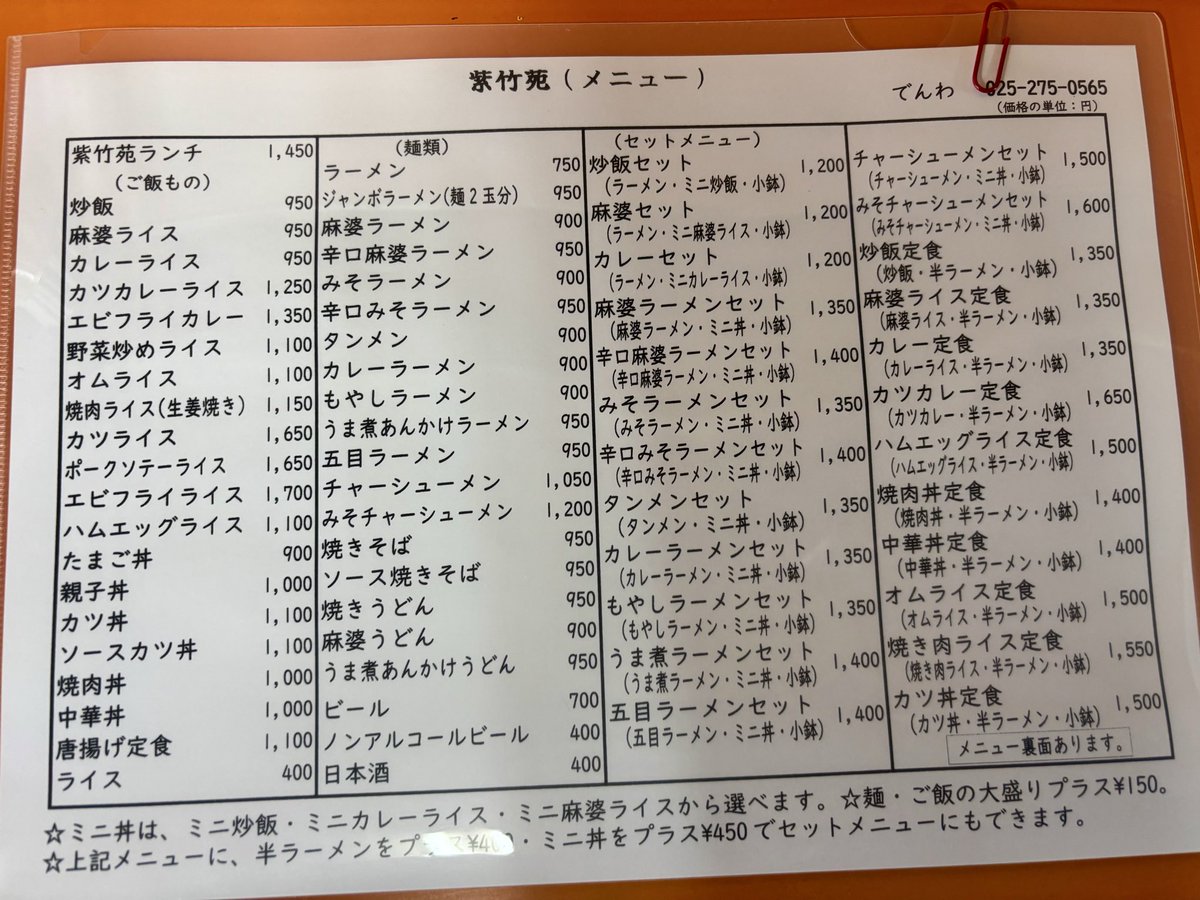 紫竹苑(メニュー)
でんわ 025-275-0565
(価格の単位:円)
紫竹苑ランチ 1,450
(ご飯もの)
炒飯 950
麻婆ライス 950
カレーライス 950
カツカレーライス 1,250
エビフライカレー 1,350
野菜炒めライス 1,100
オムライス 1,100
焼肉ライス(生姜焼き) 1,150
カツライス 1,650
ポークソテーライス 1,650
エビフライライス 1,700
ハムエッグライス 1,100
たまご丼 900
親子丼 1,000
カツ丼 1,100
ソースカツ丼 1,100
焼肉丼 1,000
中華丼 1,000
唐揚げ定食 1,100
ライス 400
(麺類)
ラーメン 750
ジャンボラーメン(麺2玉分) 950
麻婆ラーメン 900
辛口麻婆ラーメン 950
みそラーメン 900
辛口みそラーメン 950
タンメン 900
カレーラーメン 900
もやしラーメン 900
うま煮あんかけラーメン 950
五目ラーメン 950
チャーシューメン 1,050
みそチャーシューメン 1,200
焼きそば 950
ソース焼きそば 950
焼きうどん 950
麻婆うどん 900
うま煮あんかけうどん 950
ビール 700
ノンアルコールビール 400
日本酒 400
(セットメニュー)
炒飯セット 1,200
(ラーメン・ミニ炒飯・小鉢)
麻婆セット 1,200
(ラーメン・ミニ麻婆ライス・小鉢)
カレーセット 1,200
(ラーメン・ミニカレーライス・小鉢)
麻婆ラーメンセット 1,350
(麻婆ラーメン・ミニ丼・小鉢)
辛口麻婆ラーメンセット 1,400
(辛口麻婆ラーメン・ミニ丼・小鉢)
みそラーメンセット 1,350
(みそラーメン・ミニ丼・小鉢)
辛口みそラーメンセット 1,400
(辛口みそラーメン・ミニ丼・小鉢)
タンメンセット 1,350
(タンメン・ミニ丼・小鉢)
カレーラーメンセット 1,350
(カレーラーメン・ミニ丼・小鉢)
もやしラーメンセット 1,350
(もやしラーメン・ミニ丼・小鉢)
うま煮ラーメンセット 1,400
(うま煮ラーメン・ミニ丼・小鉢)
五目ラーメンセット 1,400
(五目ラーメン・ミニ丼・小鉢)
チャーシューメンセット 1,500
(チャーシューメン・ミニ丼・小鉢)
みそチャーシューメンセット 1,600
(みそチャーシューメン・ミニ丼・小鉢)
炒飯定食 1,350
(炒飯・半ラーメン・小鉢)
麻婆ライス定食 1,350
(麻婆ライス・半ラーメン・小鉢)
カレー定食 1,350
(カレーライス・半ラーメン・小鉢)
カツカレー定食 1,650
(カツカレー・半ラーメン・小鉢)
ハムエッグライス定食 1,500
(ハムエッグライス・半ラーメン・小鉢)
焼肉丼定食 1,400
(焼肉丼・半ラーメン・小鉢)
中華丼定食 1,400
(中華丼・半ラーメン・小鉢)
オムライス定食 1,500
(オムライス・半ラーメン・小鉢)
焼き肉ライス定食 1,550
(焼き肉ライス・半ラーメン・小鉢)
カツ丼定食 1,500
(カツ丼・半ラーメン・小鉢)
メニュー裏面あります。
☆ミニ丼は、ミニ炒飯・ミニカレーライス・ミニ麻婆ライスから選べます。☆麺・ご飯の大盛りプラス¥150。
☆上記メニューに、半ラーメンをプラス¥400・ミニ丼をプラス¥450でセットメニューにもできます。